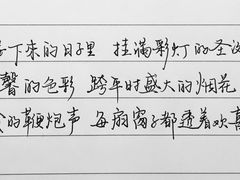 下来的日子里 挂满彩灯的圣
馨的色彩 跨年时盛大的烟花
的鞭炮声 每扇窗子都透着欢喜